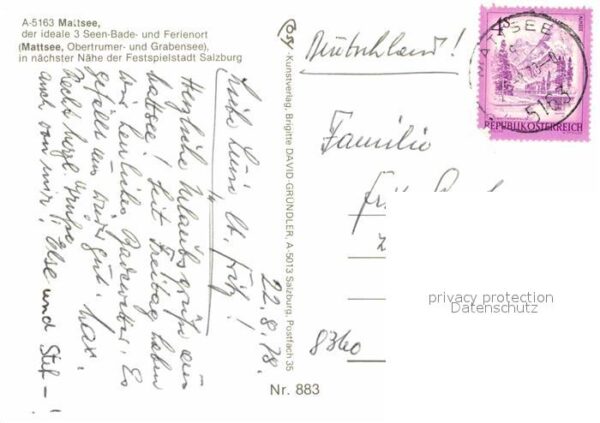 A-5163 Mattsee,
der ideale 3 Seen-Bade- und Ferienort
(Mattsee, Obertrumer- und Grabensee),
in nächster Nähe der Festspielstadt Salzburg
22.8.78.
Liebe Luisi, lb. Fritz!
Herzliche Urlaubsgrüße aus
Mattsee! Seit Freitag haben
wir herrliches Badewetter. Es
gefällt uns wieder gut.
Recht herzl. Grüße
auch von mir! Else und Stef
Cosy-Kunstverlag, Brigitte DAVID-GRÜNDLER, A-5013 Salzburg, Postfach 35
Nr. 883
Deutschland!
Familie
8360
4s
REPUBLIK ÖSTERREICH
MATTSEE
5163
privacy protection
Datenschutz